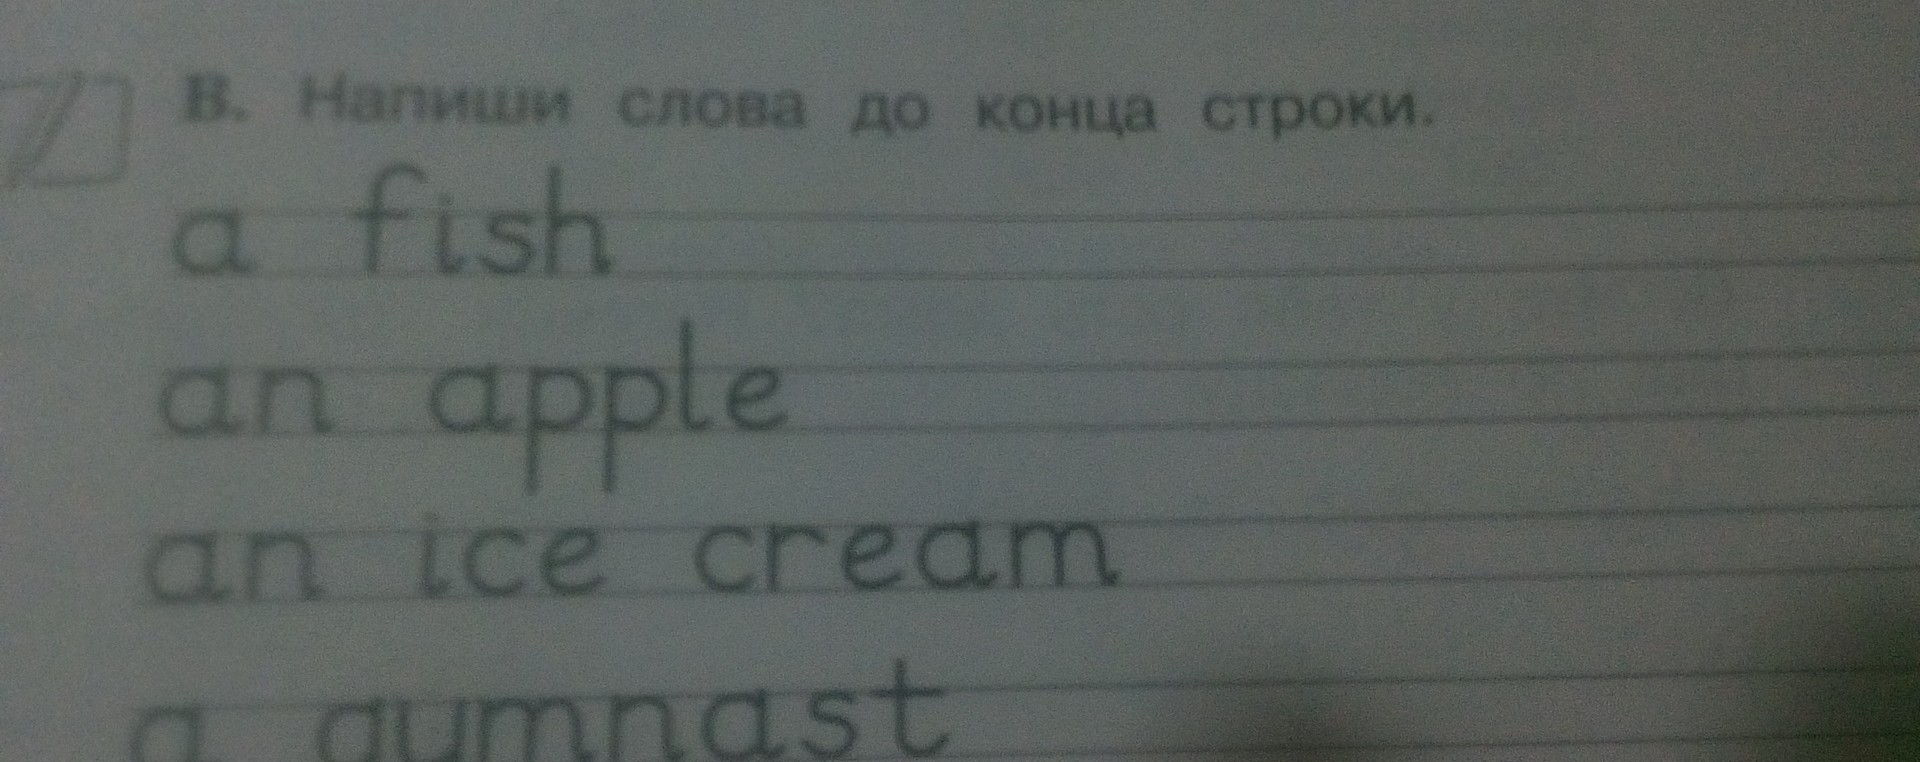 В. Напиши слова до конца строки.
a fish
an apple
an ice cream
a gymnast